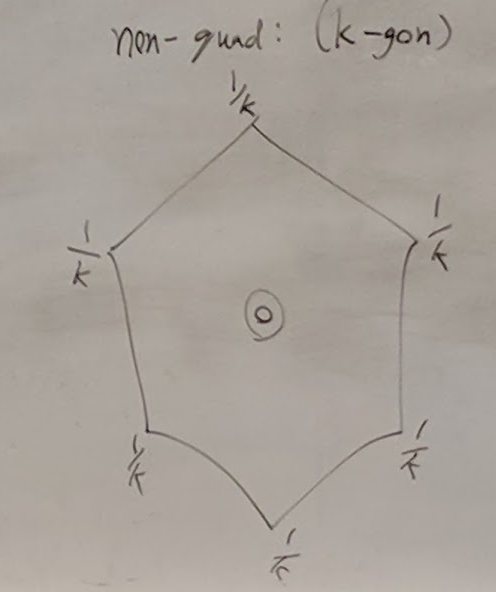 non-quad: (k-gon)
1/k
1/k
1/k
0
1/k
1/k
1/k